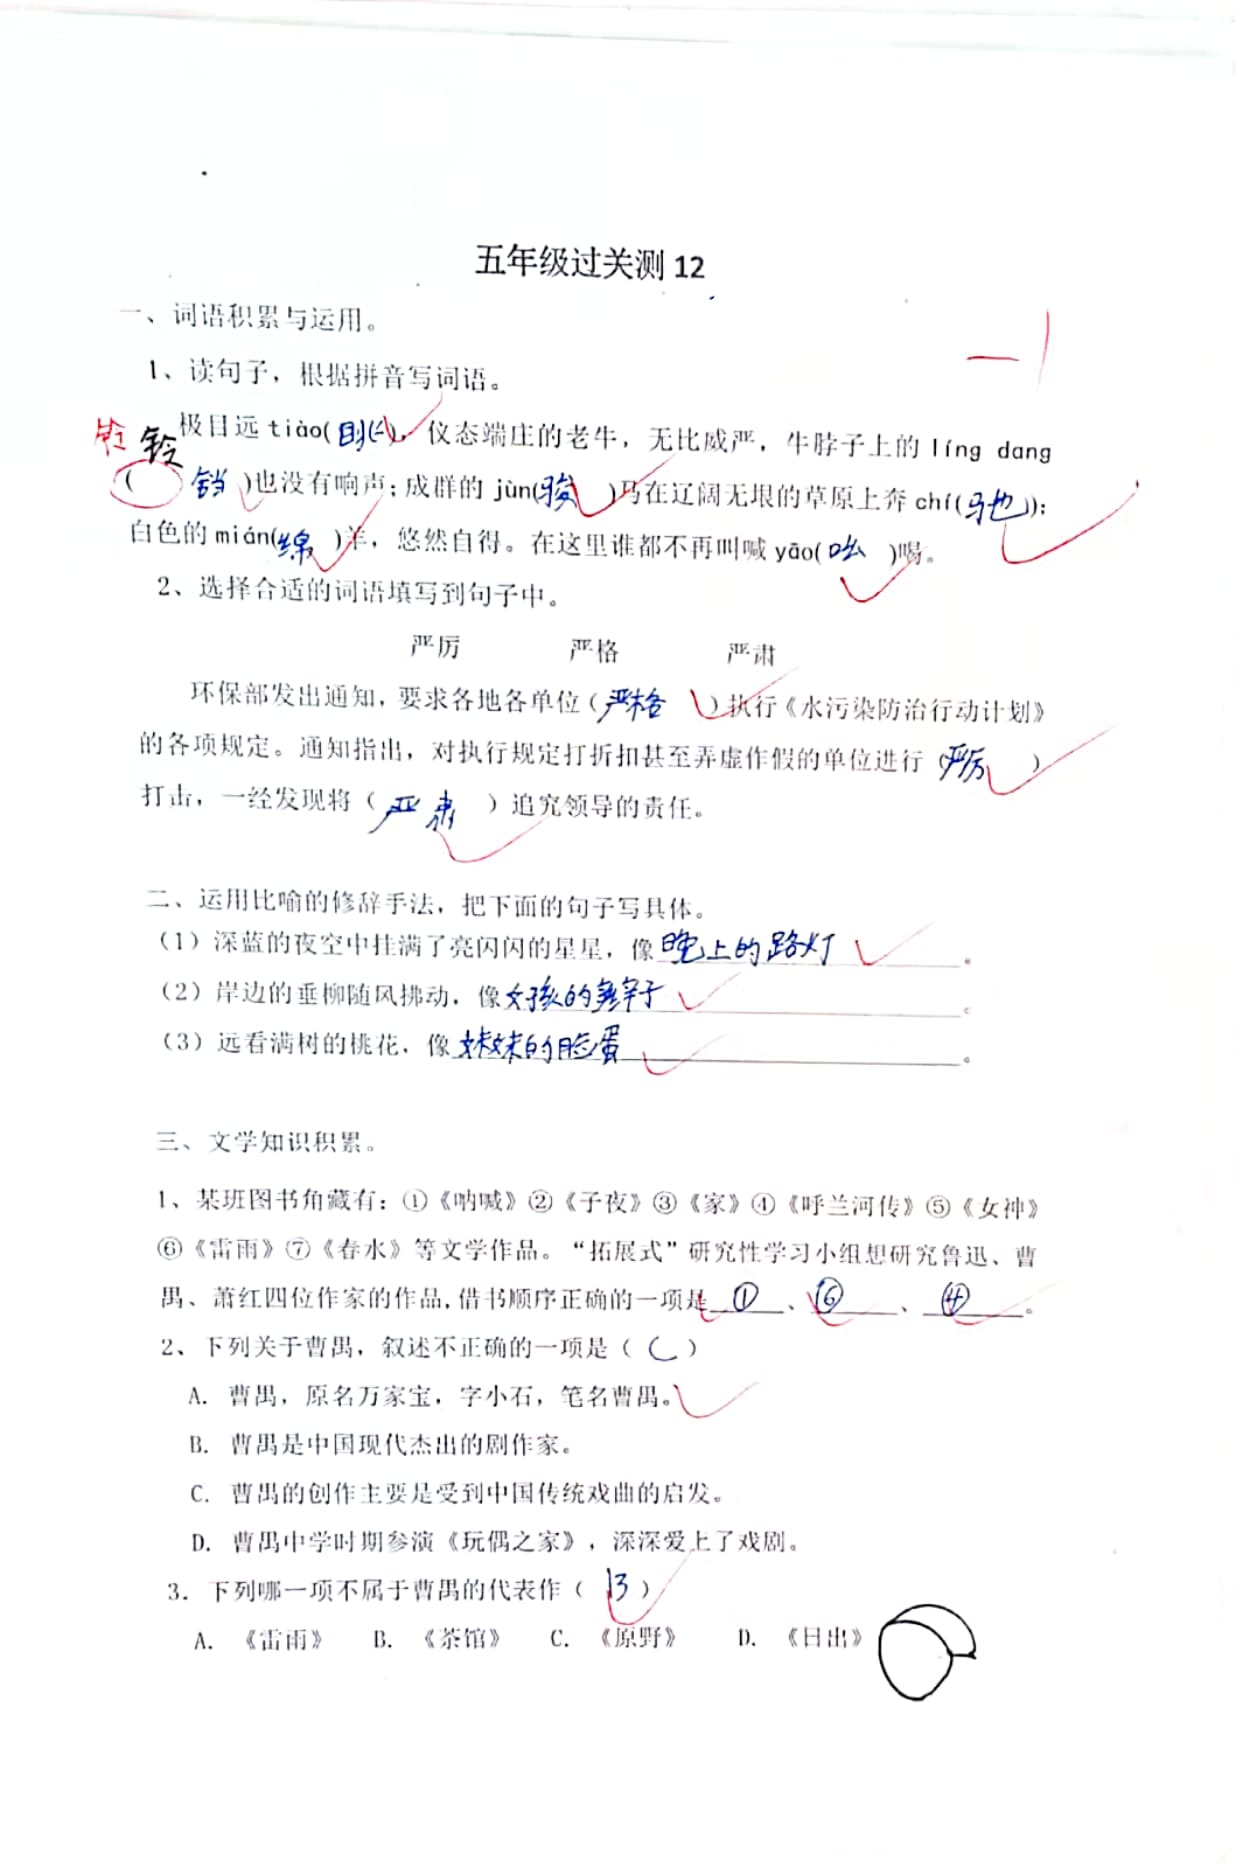 五年级过关测 12
一、词语积累与运用。
1、读句子，根据拼音写词语。
极目远 tiào(眺)，仪态端庄的老牛，无比威严，牛脖子上的 líng dang
铃 铃
( 铛 )也没有响声；成群的 jùn(骏 )马在辽阔无垠的草原上奔 chí(驰)；
白色的 mián(绵 )羊，悠然自得。在这里谁都不再叫喊 yāo(吆 )喝。
2、选择合适的词语填写到句子中。
严厉 严格 严肃
环保部发出通知，要求各地各单位（严格 ）执行《水污染防治行动计划》
的各项规定。通知指出，对执行规定打折扣甚至弄虚作假的单位进行（严厉 ）
打击，一经发现将（ 严肃 ）追究领导的责任。
二、运用比喻的修辞手法，把下面的句子写具体。
（1）深蓝的夜空中挂满了亮闪闪的星星，像晚上的路灯。
（2）岸边的垂柳随风拂动，像女孩的辫子。
（3）远看满树的桃花，像妹妹的脸蛋。
三、文学知识积累。
1、某班图书角藏有：①《呐喊》②《子夜》③《家》④《呼兰河传》⑤《女神》
⑥《雷雨》⑦《春水》等文学作品。“拓展式”研究性学习小组想研究鲁迅、曹
禺、萧红四位作家的作品,借书顺序正确的一项是 ① 、 ⑥ 、 ④ 。
2、下列关于曹禺，叙述不正确的一项是（ C ）
A. 曹禺，原名万家宝，字小石，笔名曹禺。
B. 曹禺是中国现代杰出的剧作家。
C. 曹禺的创作主要是受到中国传统戏曲的启发。
D. 曹禺中学时期参演《玩偶之家》，深深爱上了戏剧。
3. 下列哪一项不属于曹禺的代表作（ B ）
A. 《雷雨》 B. 《茶馆》 C. 《原野》 D. 《日出》
-1